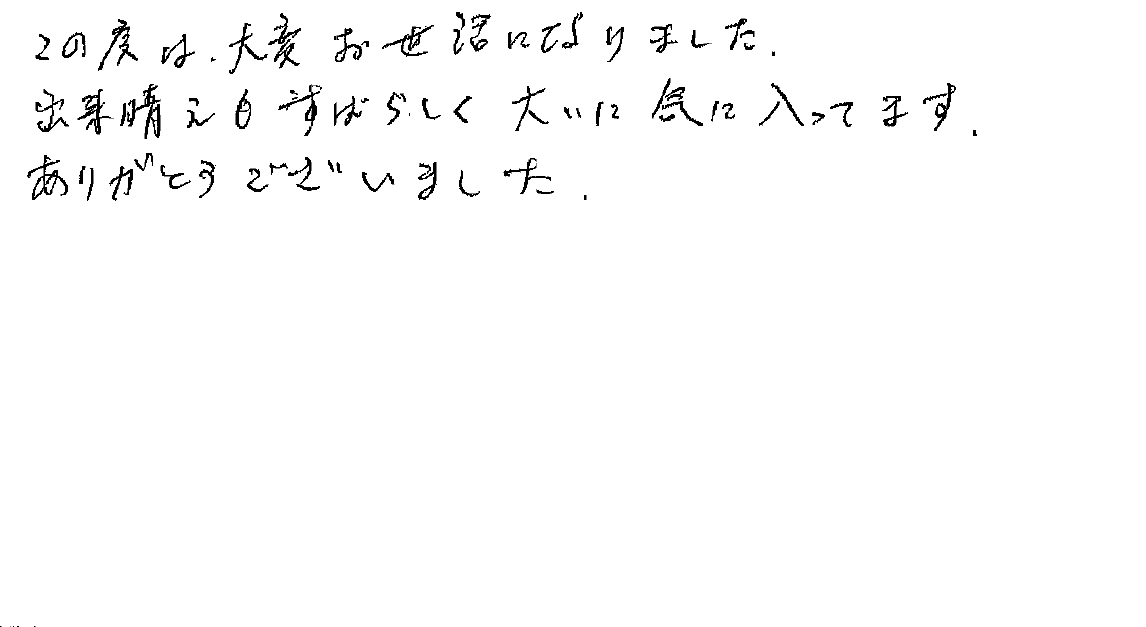 この度は、大変お世話になりました.
出来晴えもすばらしく大いに気に入ってます.
ありがとうございました.